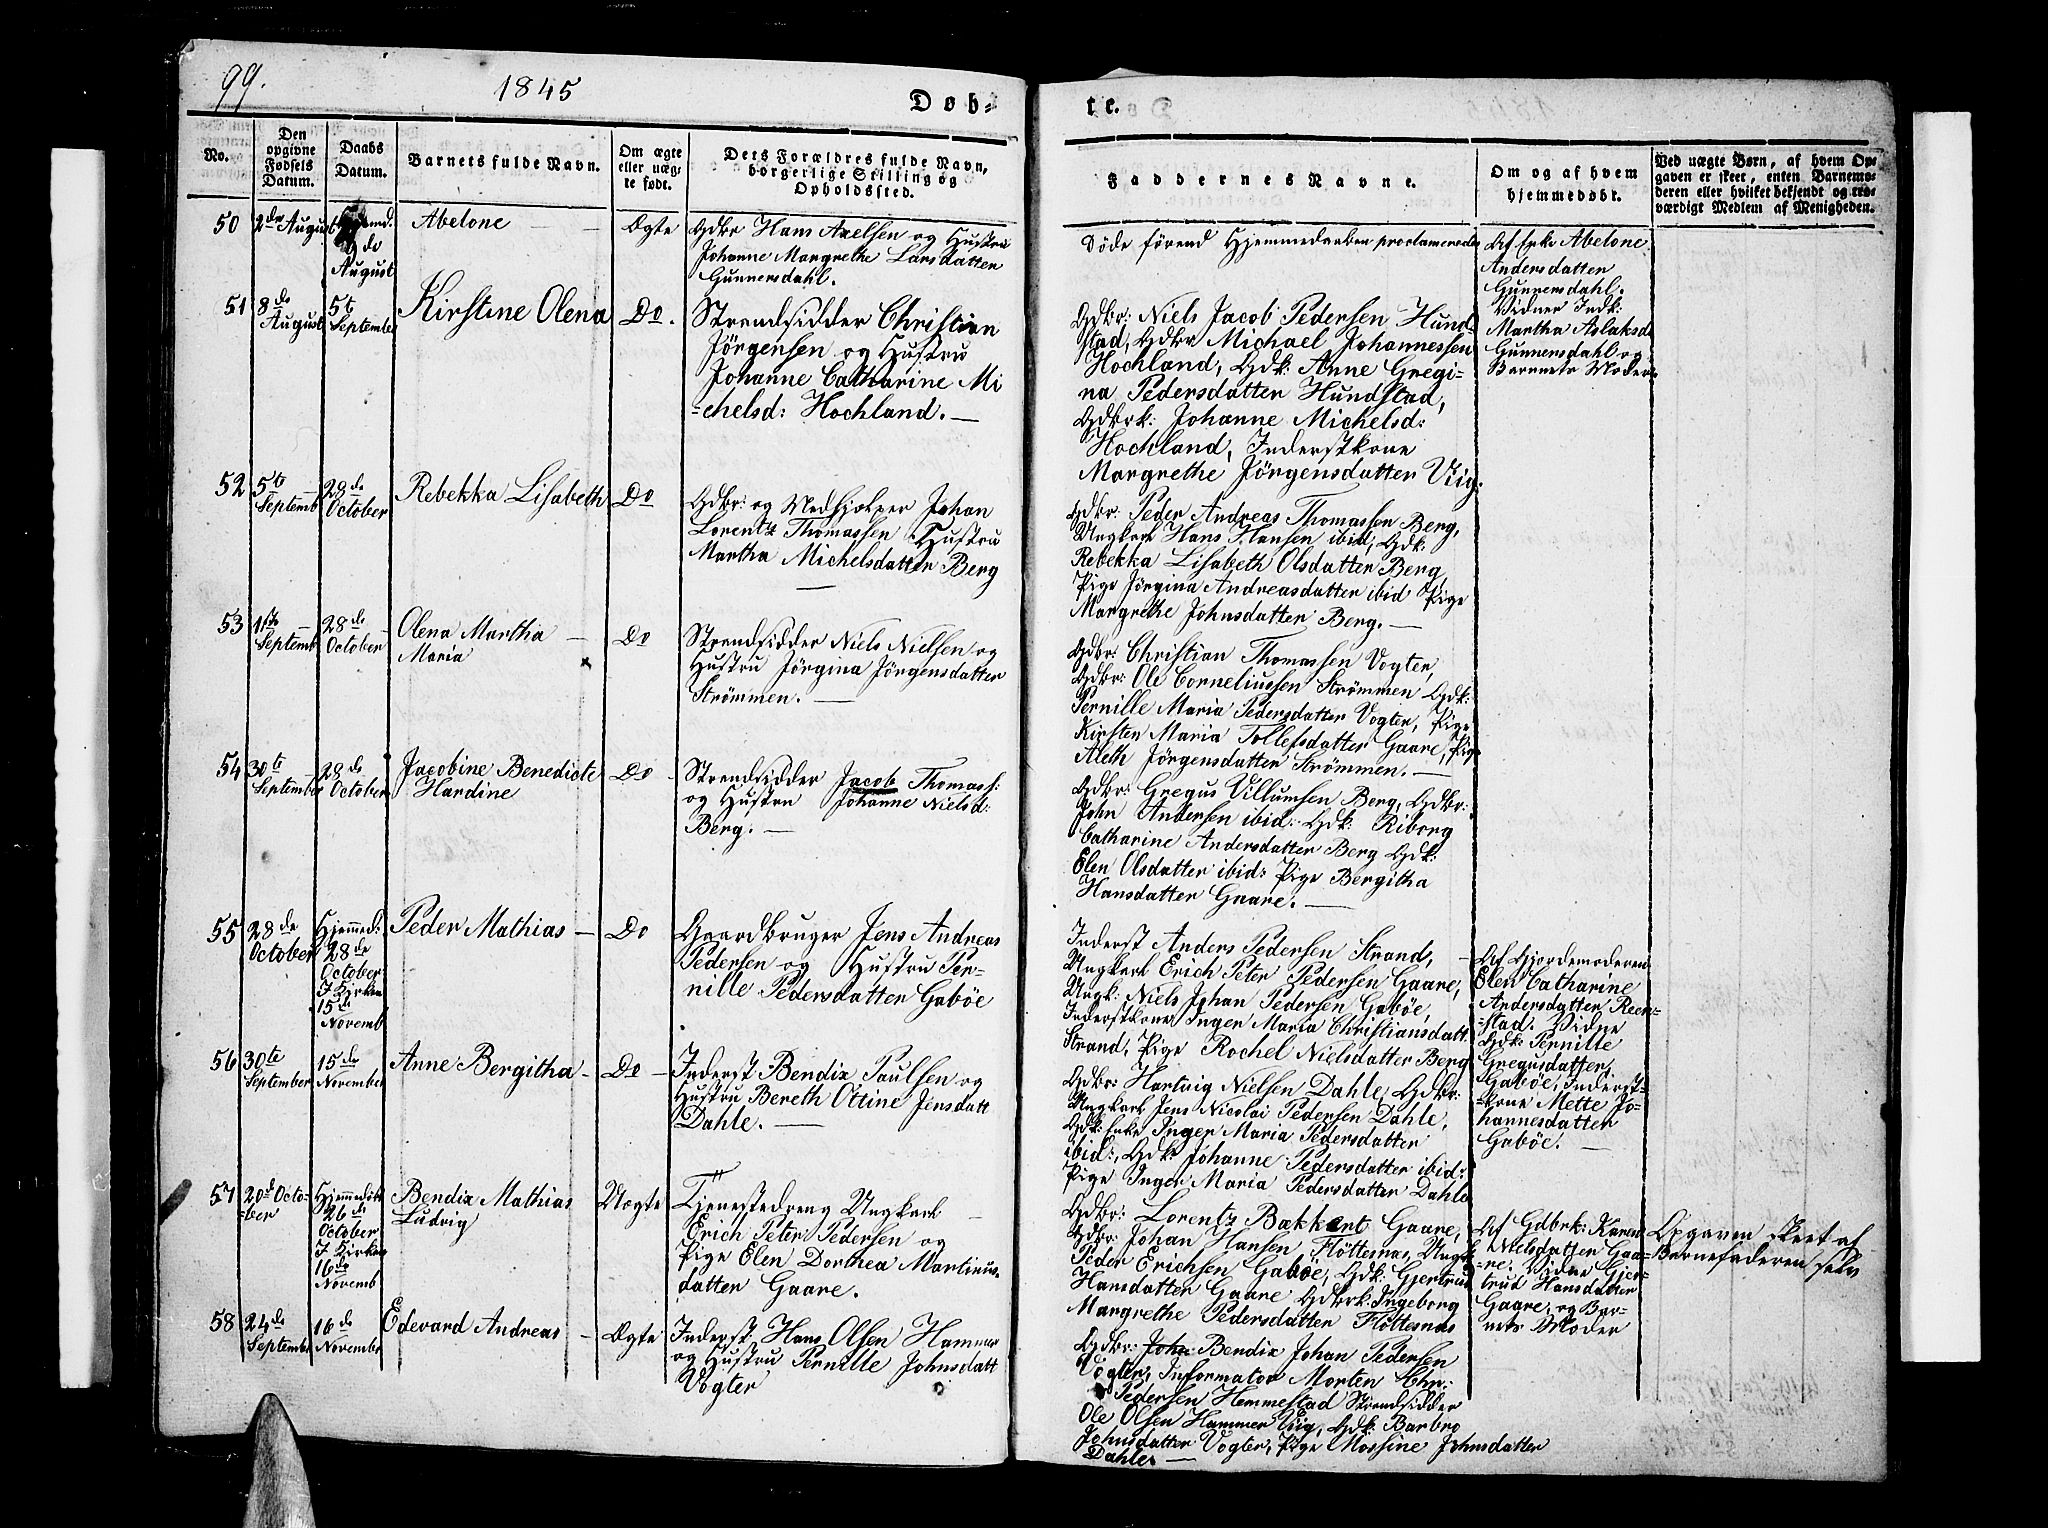 99.
1845
Døb-
te.
No.
Den
opgivne
Fødsels
Datum.
Daabs
Datum.
Barnets fulde Navn.
Om ægte
eller uæg-
te født.
Dets Forældres fulde Navn,
borgerlige Stilling og
Opholdssted.
Faddernes Navne.
Om og af hvem
hjemmedøbt.
Ved uægte Børn, af hvem Op-
gaven er skeet, enten Barnemo-
deren eller hvilket bekjendt og tro-
værdigt Medlem af Menigheden.
50
2de August
August
Abelone
Ægte
Gdbr Hans Axelsen og Hustru
Johanne Margrethe Larsdatter
Gunnersdahl.
Døde førend Hjemmedaaben proclameredes
Af Enke Abelone
Andersdatten
Gunnersdahl.
Vidner Indk:
Martha Aslaksd
Gunnersdahl og
Barnets Moder
51
8de
August
5te
September
Kirstine Olena
Do.
Strandsidder Christian
Jörgensen og Hustru
Johanne Catharine Mi
=chelsd: Hochland. —
Gdbr: Niels Jacob Pedersen Hund-
stad, Gdbr Michael Johannessen
Hochland, Gdk: Anne Gregi-
na Pedersdatter Hundstad,
Gdbrk: Johanne Michelsd:
Hochland, Inderstkone
Margrethe Jörgensdatter Viig.
52
5te
Septemb
28de
October
Rebekka Lisabeth
Do
Gdbr: og Medhjelper Johan
Lorentz Thomassen Hustru
Martha Michelsdatter Berg
Gdbr: Peder Andreas Thomassen Berg,
Ungkarl Hans Hansen ibid, Gdk:
Rebekka Lisabeth Olsdatter Berg,
Pige Jörgina Andreasdatter ibid Pige
Margrethe Johnsdatter Berg. —
53
1ste
Septemb
28de
October
Olena Martha
Maria
Do
Strandsidder Niels Nielsen og
Hustru Jörgina Jörgensdatter
Strömmen. —
Gdbr: Christian Thomassen Vogter,
Gdbr: Ole Corneliussen Strömmen Gdk:
Pernille Maria Pedersdatter Vogter, Pige
Kirsten Maria Tollefsdatter Gaare, Pige
Aleth Jörgensdatter Strömmen. —
54
30te
September
28de
October
Jacobine Benedicte
Hardine
Do
Strandsidder Jacob Thomass:
og Hustru Johanne Nielsd:
Berg. —
Gdbr: Gregus Villumsen Berg, Gdbr:
John Andersen ibid: Gdk: Riborg
Catharine Andersdatter Berg Gdk:
Elen Olsdatter ibid: Pige Bergitha
Hansdatter Gaare. —
55
28de
October
Hjemmed:
28de
October
I Kirken
15de
Novemb
Peder Mathias —
Do
Gaardbruger Jens Andreas
Pedersen og Hustru Per-
nille Pedersdatter Gaböe
Inderst Anders Pedersen Strand, —
Ungkarl Erich Peter Pedersen Gaare,
Ungk: Niels Johan Pedersen Gaböe,
Inderstkone Inger Maria Christiansdatt
Strand, Pige Rochel Nielsdatter Berg
Af Gjordemoderen
Elen Catharine
Andersdatter Reen-
=stad. Vidne
Gdk: Pernille
Gregusdatter
Gaböe, Inderst-
=kone Mette Jo-
hannesdatter
Gaböe. —
56
30te
September
15de
November
Anne Bergitha —
Do —
Inderst Bendix Paulsen og
Hustru Bereth Ottine Jensdatt
Dahle. —
Gdbr: Hartvig Nielsen Dahle, Gdbr:
Ungkarl Jens Nicolai Pedersen Dahle,
Gdk: Enke Inger Maria Pedersdatter
ibid:, Gdk: Johanne Pedersdatter ibid:
Pige Inger Maria Pedersdatter Dahle
57
20de Octo-
=ber
Hjemmedöbt
26de
October
I Kirken
16de
Novemb
Bendix Mathias
Ludvig
Uægte
Tjenestedreng Ungkarl
Erich Peter Pedersen og
Pige Elen Dorthea Martinus-
datter Gaare.
Gdbr: Lorentz Bækkent Gaare,
Gdbr: Johan Hansen, Flöttenas, Ungk
Peder Erichsen Gaböe, Gdk: Gjertrud
Hansdatter Gaare Gdbrk: Ingeborg
Margrethe Pedersdatter Flöttenas
Af Gdbrk: Karen
Nielsdatter Gaa-
=re. Vidne Gjer-
trud Hansdatter
Gaare, og Bar-
nets Moder
Opgaven skeet af
Barnefaderen selv
58
24de
Septemb
16de
Novembr
Edevard Andreas —
Ægte
Inderst Hans Olsen Hammer
og Hustru Pernille Johnsdatt
Vogter
Gdbr: Joha Bendix Johan Pedersen
Vogter, Informator Morten Chr:
Pedersen Hemmestad Strandsidder
Ole Olsen Hammer Viig, Gdk: Barbro
Johnsdatter Vogter, Pige Massine Johnsdatter
Dahle —